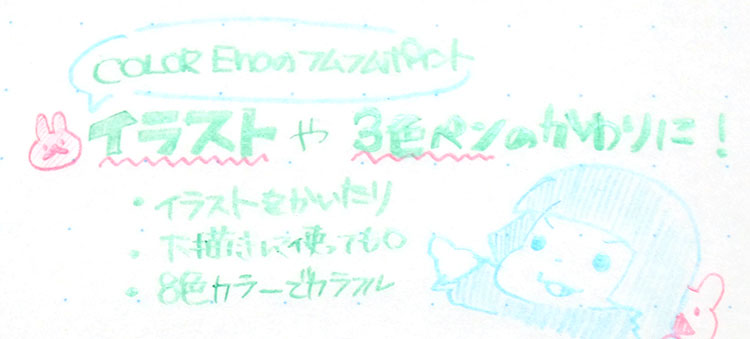 COLOR Enoのフムフムポイント
イラストや3色ペンのかわりに!
・イラストをかいたり
・下描きに使っても○
・8色カラーでカラフル